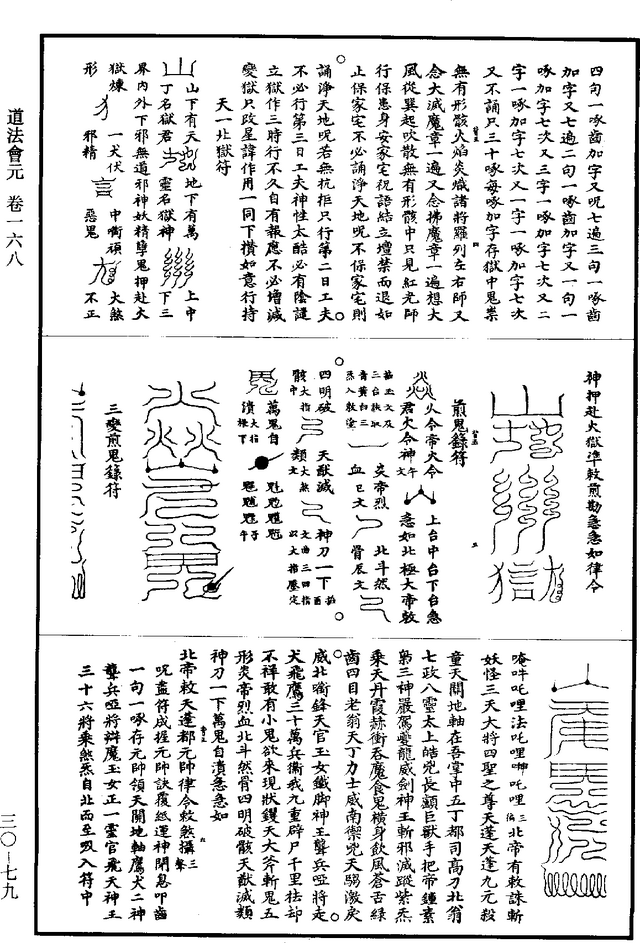 道法會元 卷一六八
四句一啄齒加字又呪七遍三句一啄齒
加字又七遍二句一啄齒加字又一句一
啄加字七次又三字一啄加字七次又二
字一啄加字七次又一字一啄加字七次
又不誦只三十啄每啄加字存獄中鬼祟
無有形骸火焰炎熾諸將羅列左右師又
念大滅魔章一遍又念拂魔章一遍想大
風從巽起吹散無有形骸中只見紅光師
行保患身安家宅祝語結立壇禁而退如
止保家宅不必誦淨天地呪不保家宅則
誦淨天地呪若無抗拒只行第二日工夫
不必行第三日工夫神性太酷必有陰譴
立獄作三時行不久自有報應不必增減
變獄只改星諱作用一同下攢如意行持
天一北獄符
山下有天 地下有萬
丁名獄君 靈名獄神 上中
下三
界內外下邪無道邪神妖精孽鬼押赴火
獄煉 一犬伏 中嘴頑 大煞
形 邪精 惡鬼 不正
神押赴火獄準敕煎勘急急如律令
煎鬼籙符
火令帝火令
君火令神
上台中台下台急
急如北極大帝敕
炎帝烈
血
北斗然
骨
四明破
骸
天猷滅
類
神刀一下
萬鬼自
潰
魁䰢魓魒
三變煎鬼籙符
唵吽吒哩法吒哩呻吒哩 北帝有敕誅斬
妖怪三天大將四聖之尊天蓬天蓬九元殺
童天關地軸在吾掌中五丁都司高刀北翁
七政八靈太上皓兇長顱巨獸手把帝鍾素
梟三神嚴駕夔龍威劍神王斬邪滅蹤紫炁
乘天丹霞赫衝吞魔食鬼橫身飲風蒼舌綠
齒四目老翁天丁力士威南禦兇天騶激戾
威北嘴鋒天官玉女鐵腳神王聾兵啞將走
犬飛鷹三十萬兵衛我九重辟尸千里袪却
不祥敢有小鬼欲來現狀钁天大斧斬鬼五
形炎帝烈血北斗然骨四明破骸天猷滅類
神刀一下萬鬼自潰急急如
北帝敕天蓬都元帥律令敕煞攝
呪盡符成揑元帥訣復總運神閉息叩齒
一句一啄存元帥領天關地軸鷹犬二神
聾兵啞將辯魔玉女正一靈官飛天神王
三十六將乘煞炁自北而至吸入符中
三〇—七九